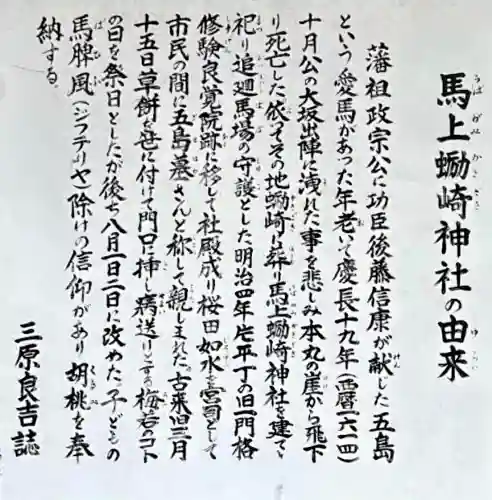 馬上蛎崎神社の由来
藩祖政宗公に功臣後藤信康が献じた五島
という愛馬があった年老いて慶長十九年(西暦一六一四)
十月公の大坂出陣に洩れた事を悲しみ本丸の崖から飛下
り死亡した依ってその地蛎崎に葬り馬上蛎崎神社を建てて
祀り追廻馬場の守護とした明治四年片平丁の旧一門格
修験良覚院跡に移して社殿成り桜田如水を宮司として
市民の間に五島墓さんと称して親しまれた。古来旧三月
十五日草餅を笹に付けて門口に挿し病送りとする梅若のコト
の日を祭日としたが後ち八月一日二日に改めた。子どもの
馬脾風(ジフテリヤ)除けの信仰があり胡桃を奉
納する。
三原良吉誌